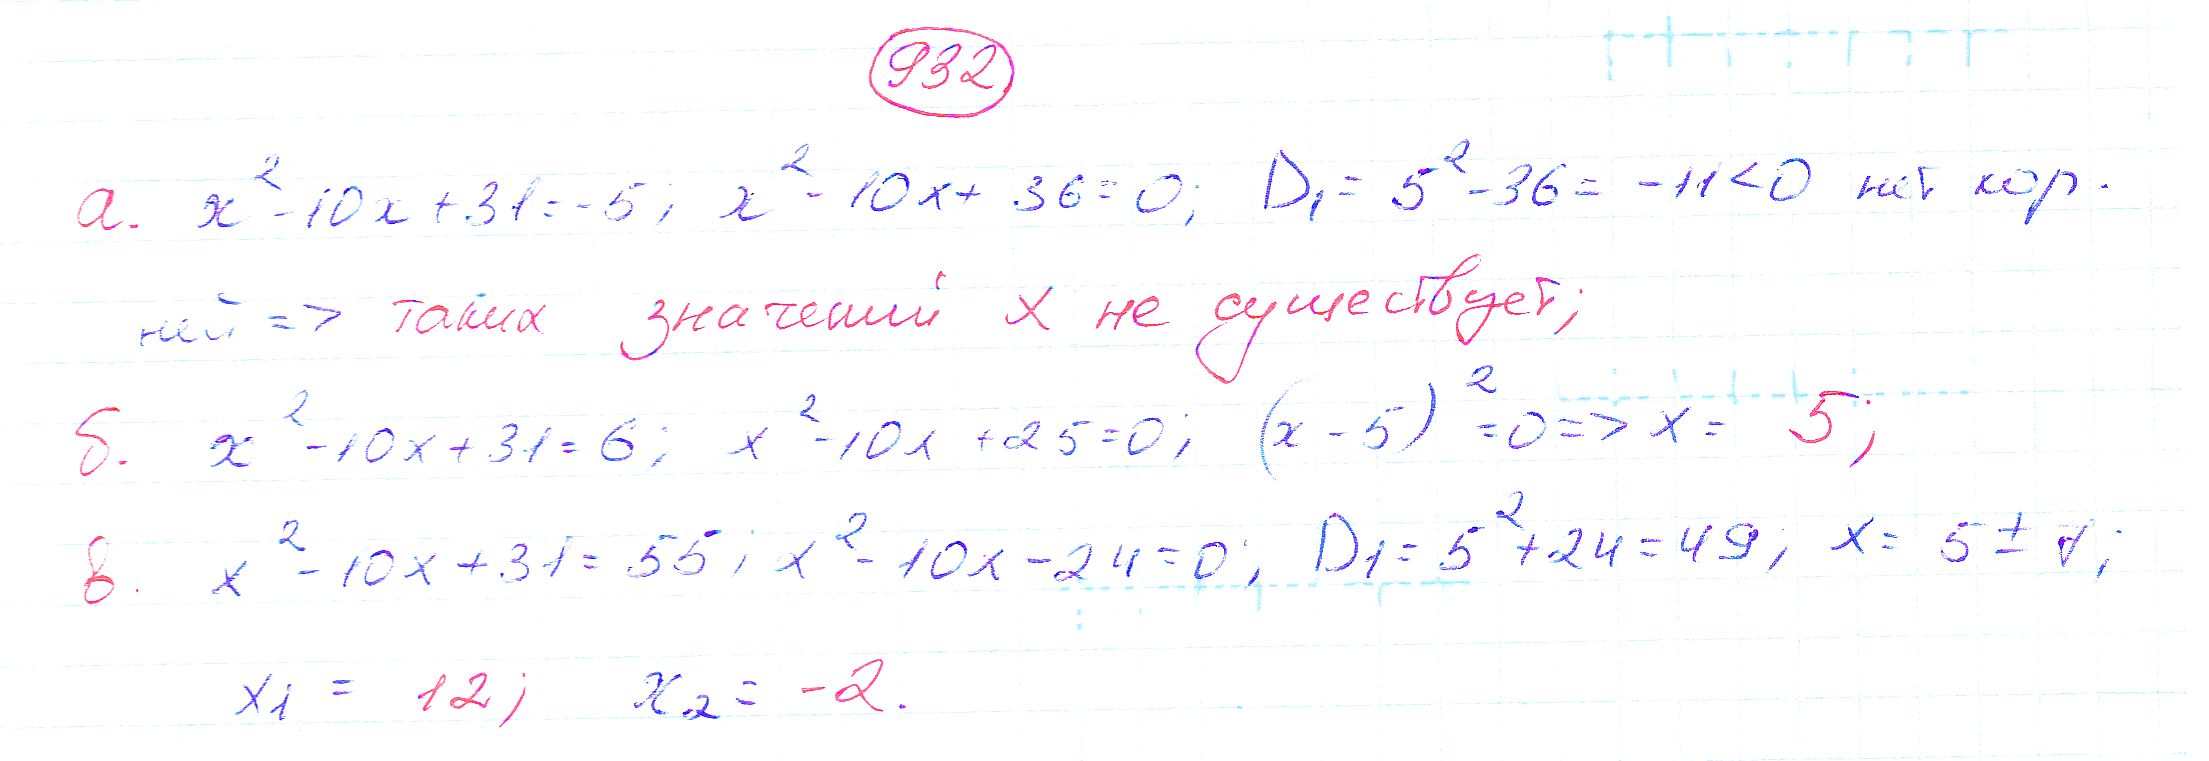 932
а. x²-10x+31=-5; x²-10x+36=0; D₁=5²-36=-11<0 нет кор-
ней => таких значений x не существует;
б. x²-10x+31=6; x²-10x+25=0; (x-5)²=0=> x= 5;
в. x²-10x+31=55; x²-10x-24=0; D₁=5²+24=49; x= 5±7;
x₁ = 12; x₂= -2.